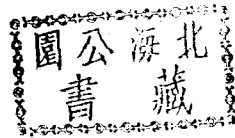 北海公園
藏書